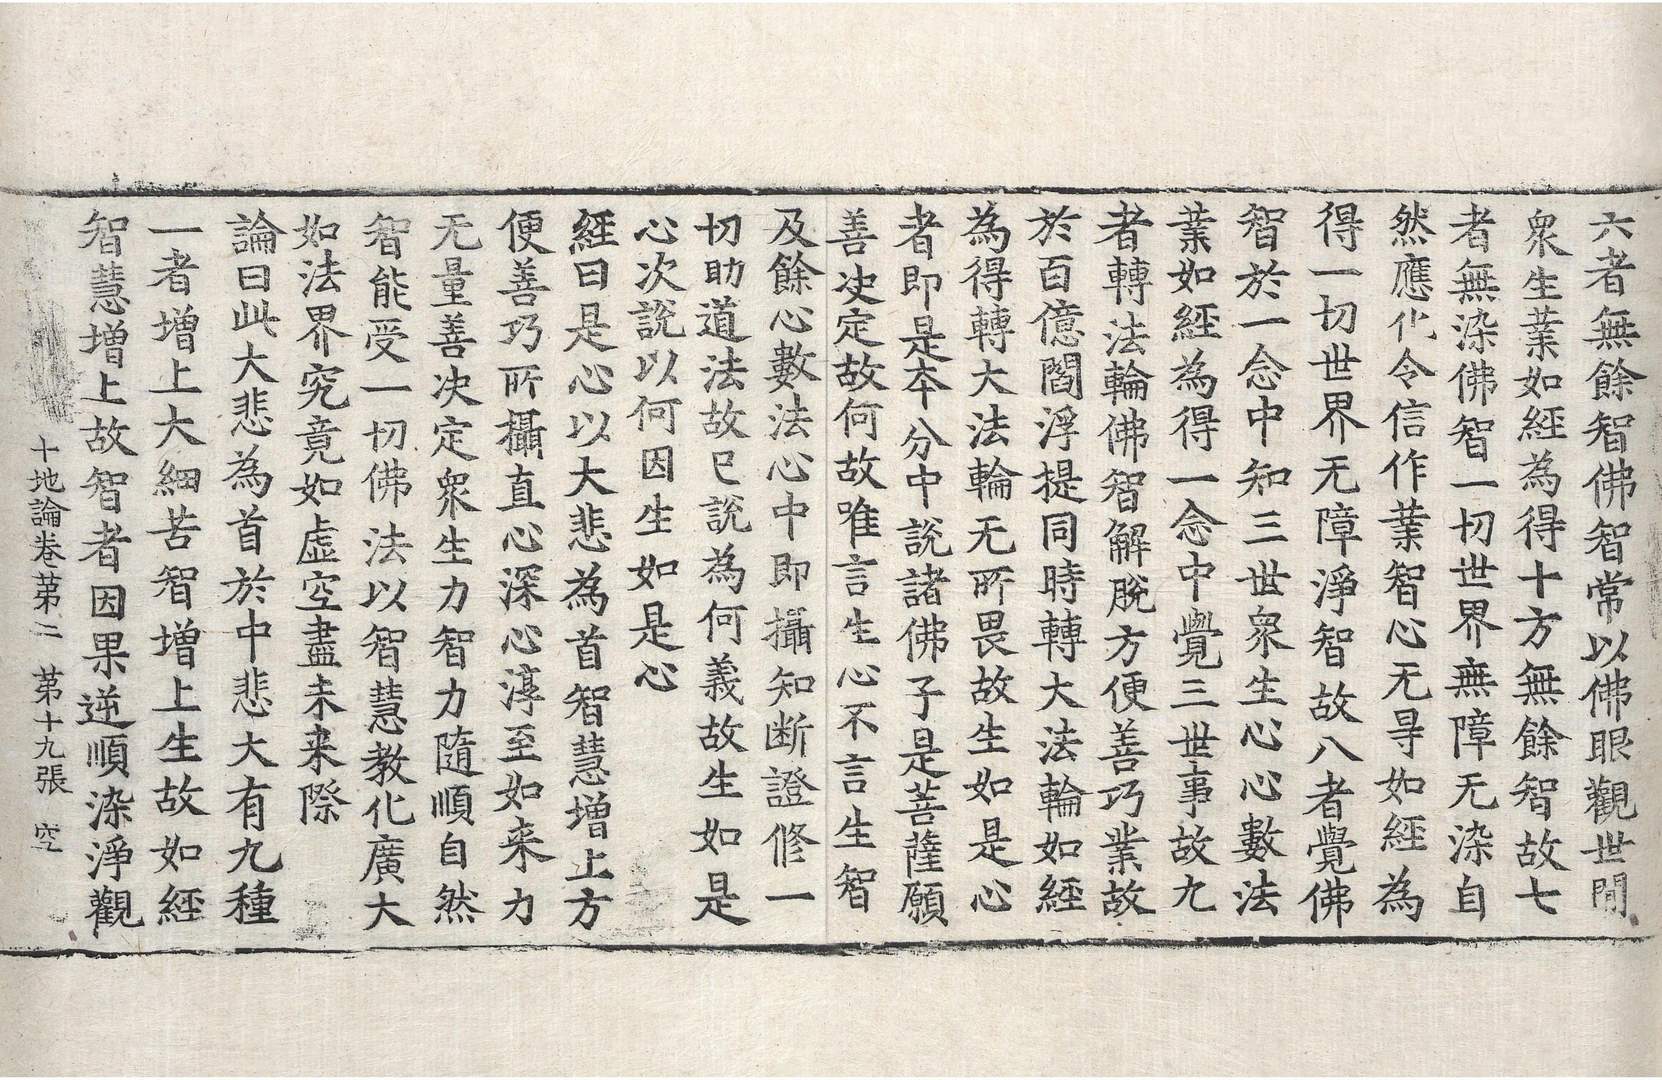 六者無餘智佛智常以佛眼觀世間
衆生業如經為得十方無餘智故七
者無染佛智一切世界無障无染自
然應化令信作業智心无㝵如經為
得一切世界无障淨智故八者覺佛
智於一念中知三世衆生心心數法
業如經為得一念中覺三世事故九
者轉法輪佛智解脫方便善巧業故
於百億閻浮提同時轉大法輪如經
為得轉大法輪无所畏故生如是心
者即是本分中說諸佛子是菩薩願
善决定故何故唯言生心不言生智
及餘心數法心中即攝知断證修一
切助道法故已說為何義故生如是
心次說以何因生如是心
經曰是心以大悲為首智慧增上方
便善巧所攝直心深心淳至如来力
无量善决定衆生力智力隨順自然
智能受一切佛法以智慧教化廣大
如法界究竟如虛空盡未来際
論曰此大悲為首於中悲大有九種
一者增上大細苦智增上生故如經
智慧增上故智者因果逆順染淨觀
十地論卷第二　第十九張　空